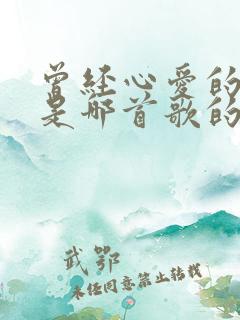 曾经心爱的
是哪首歌的
武鄂
未经同意禁止转载